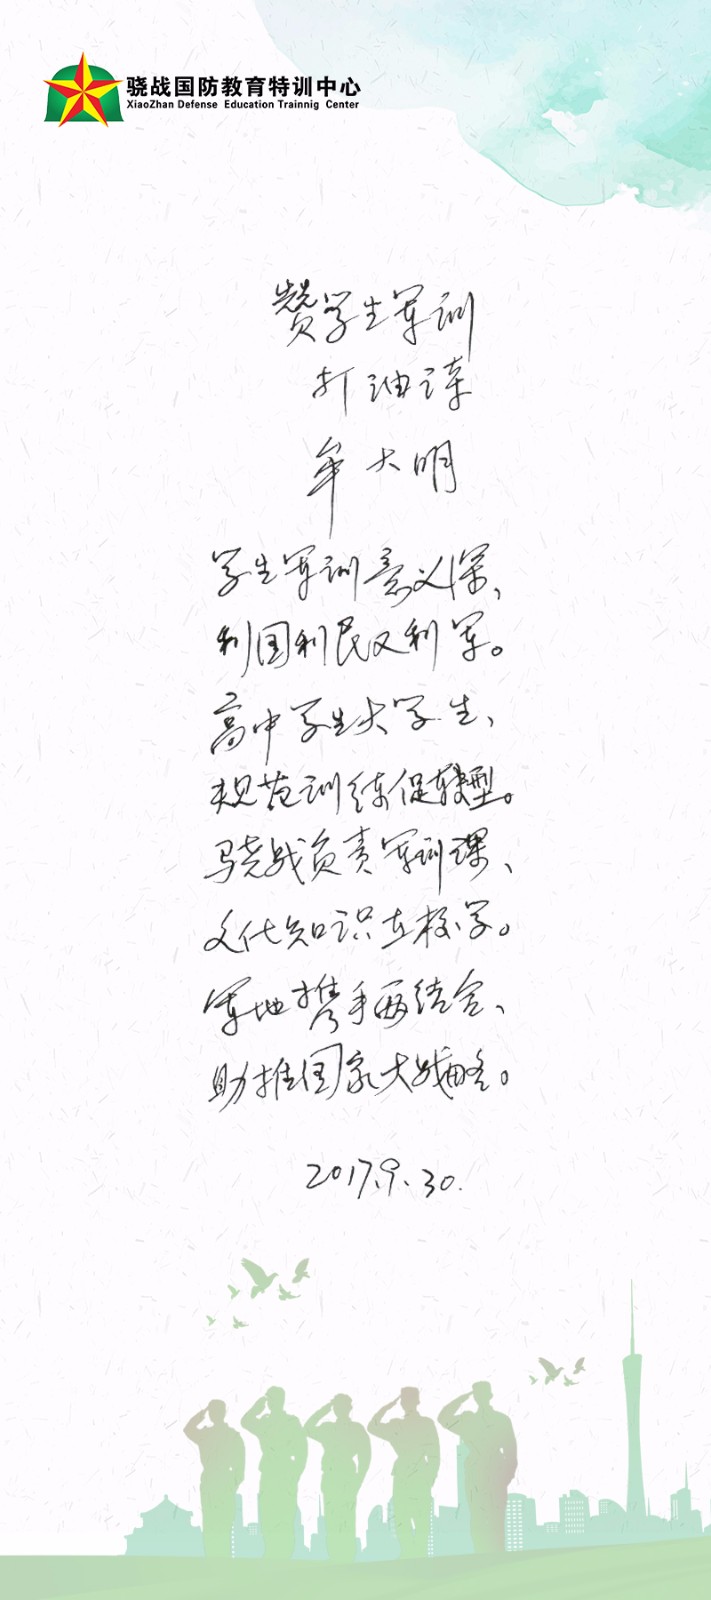 骁战国防教育特训中心
XiaoZhan Defense Education Trainnig Center
赞学生军训
打油诗
牟大明
学生军训意义深，
利国利民又利军。
高中学生大学生、
规范训练促转型。
骁战负责军训课、
文化知识在校学。
军地携手两结合、
助推国家大战略。
2017.9.30.